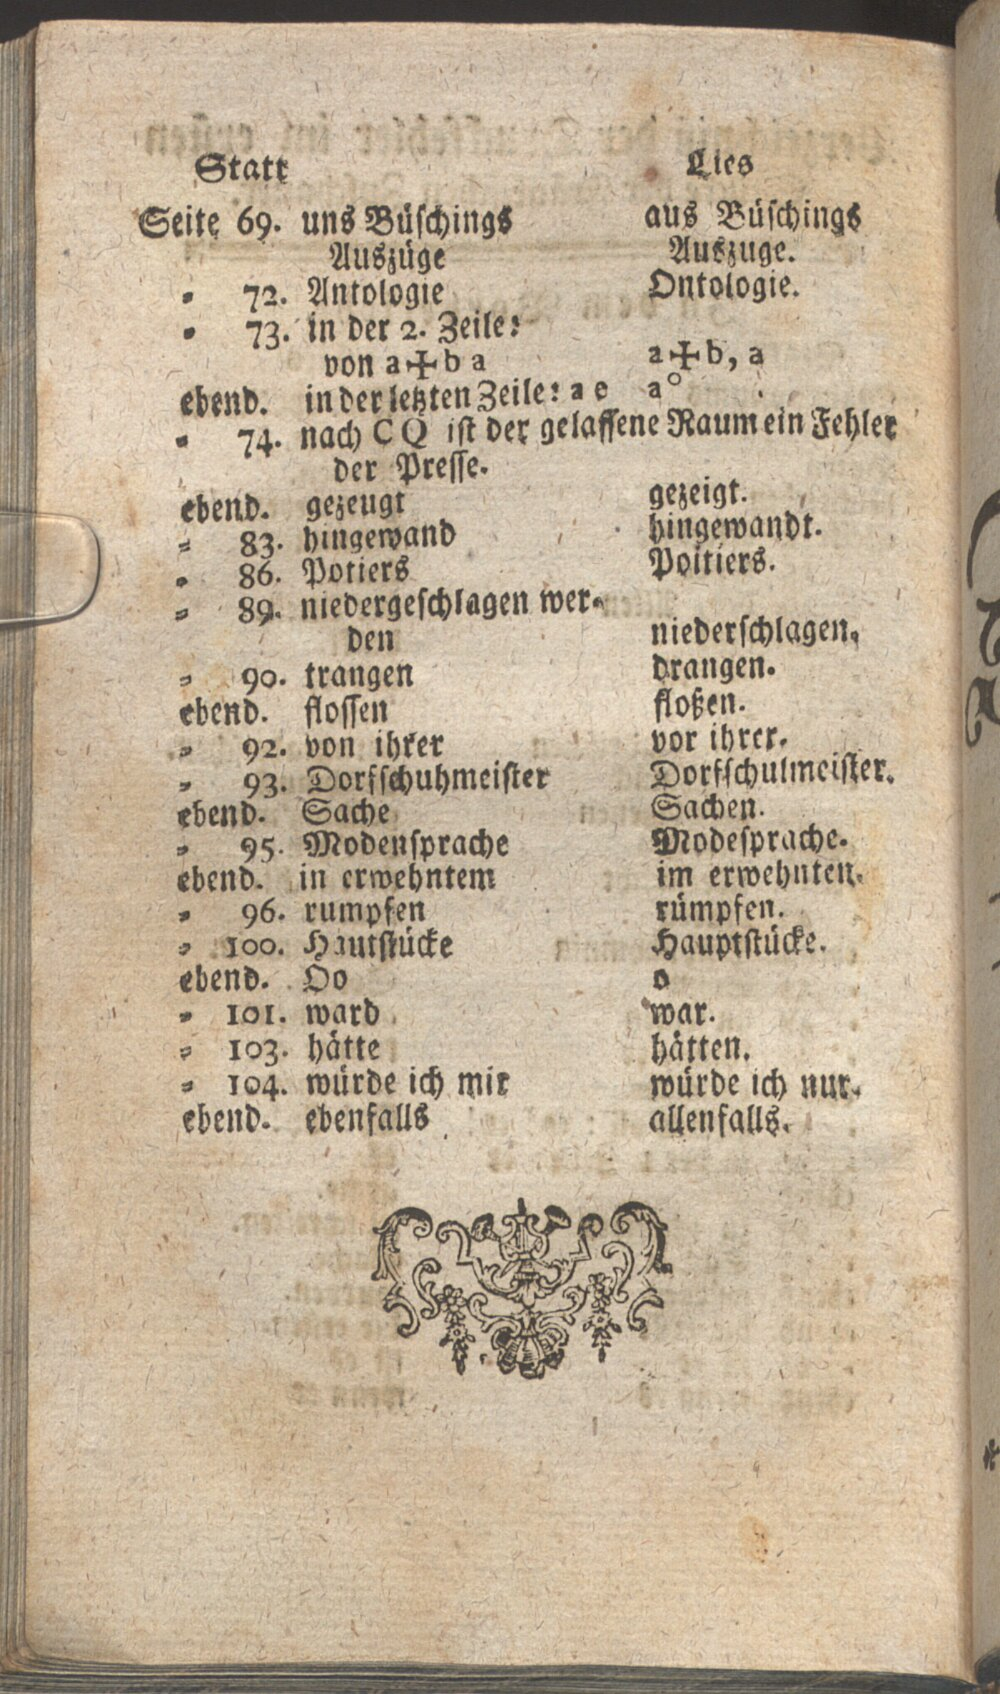 Statt Lies
Seite 69. uns Büſchings aus Büſchings
Auszüge Auszuge.
„ 72. Antologie Ontologie.
„ 73. in der 2. Zeile:
von a+b a a+b, a
ebend. in der letzten Zeile: a o a°
„ 74. nach C Q iſt der gelaſſene Raum ein Fehler
der Preſſe.
ebend. gezeugt gezeigt.
„ 83. hingewand hingewandt.
„ 86. Potiers Poitiers.
„ 89. niedergeſchlagen wer⸗
den niederſchlagen.
„ 90. trangen drangen.
ebend. floſſen floßen.
„ 92. von ihrer vor ihrer.
„ 93. Dorfſchuhmeiſter Dorfſchulmeiſter.
ebend. Sache Sachen.
„ 95. Modenſprache Modeſprache.
ebend. in erwehntem im erwehnten.
„ 96. rumpfen rümpfen.
„ 100. Hautſtücke Hauptſtücke.
ebend. Oo o
„ 101. ward war.
„ 103. hätte hätten.
„ 104. würde ich mir würde ich nur.
ebend. ebenfalls allenfalls.